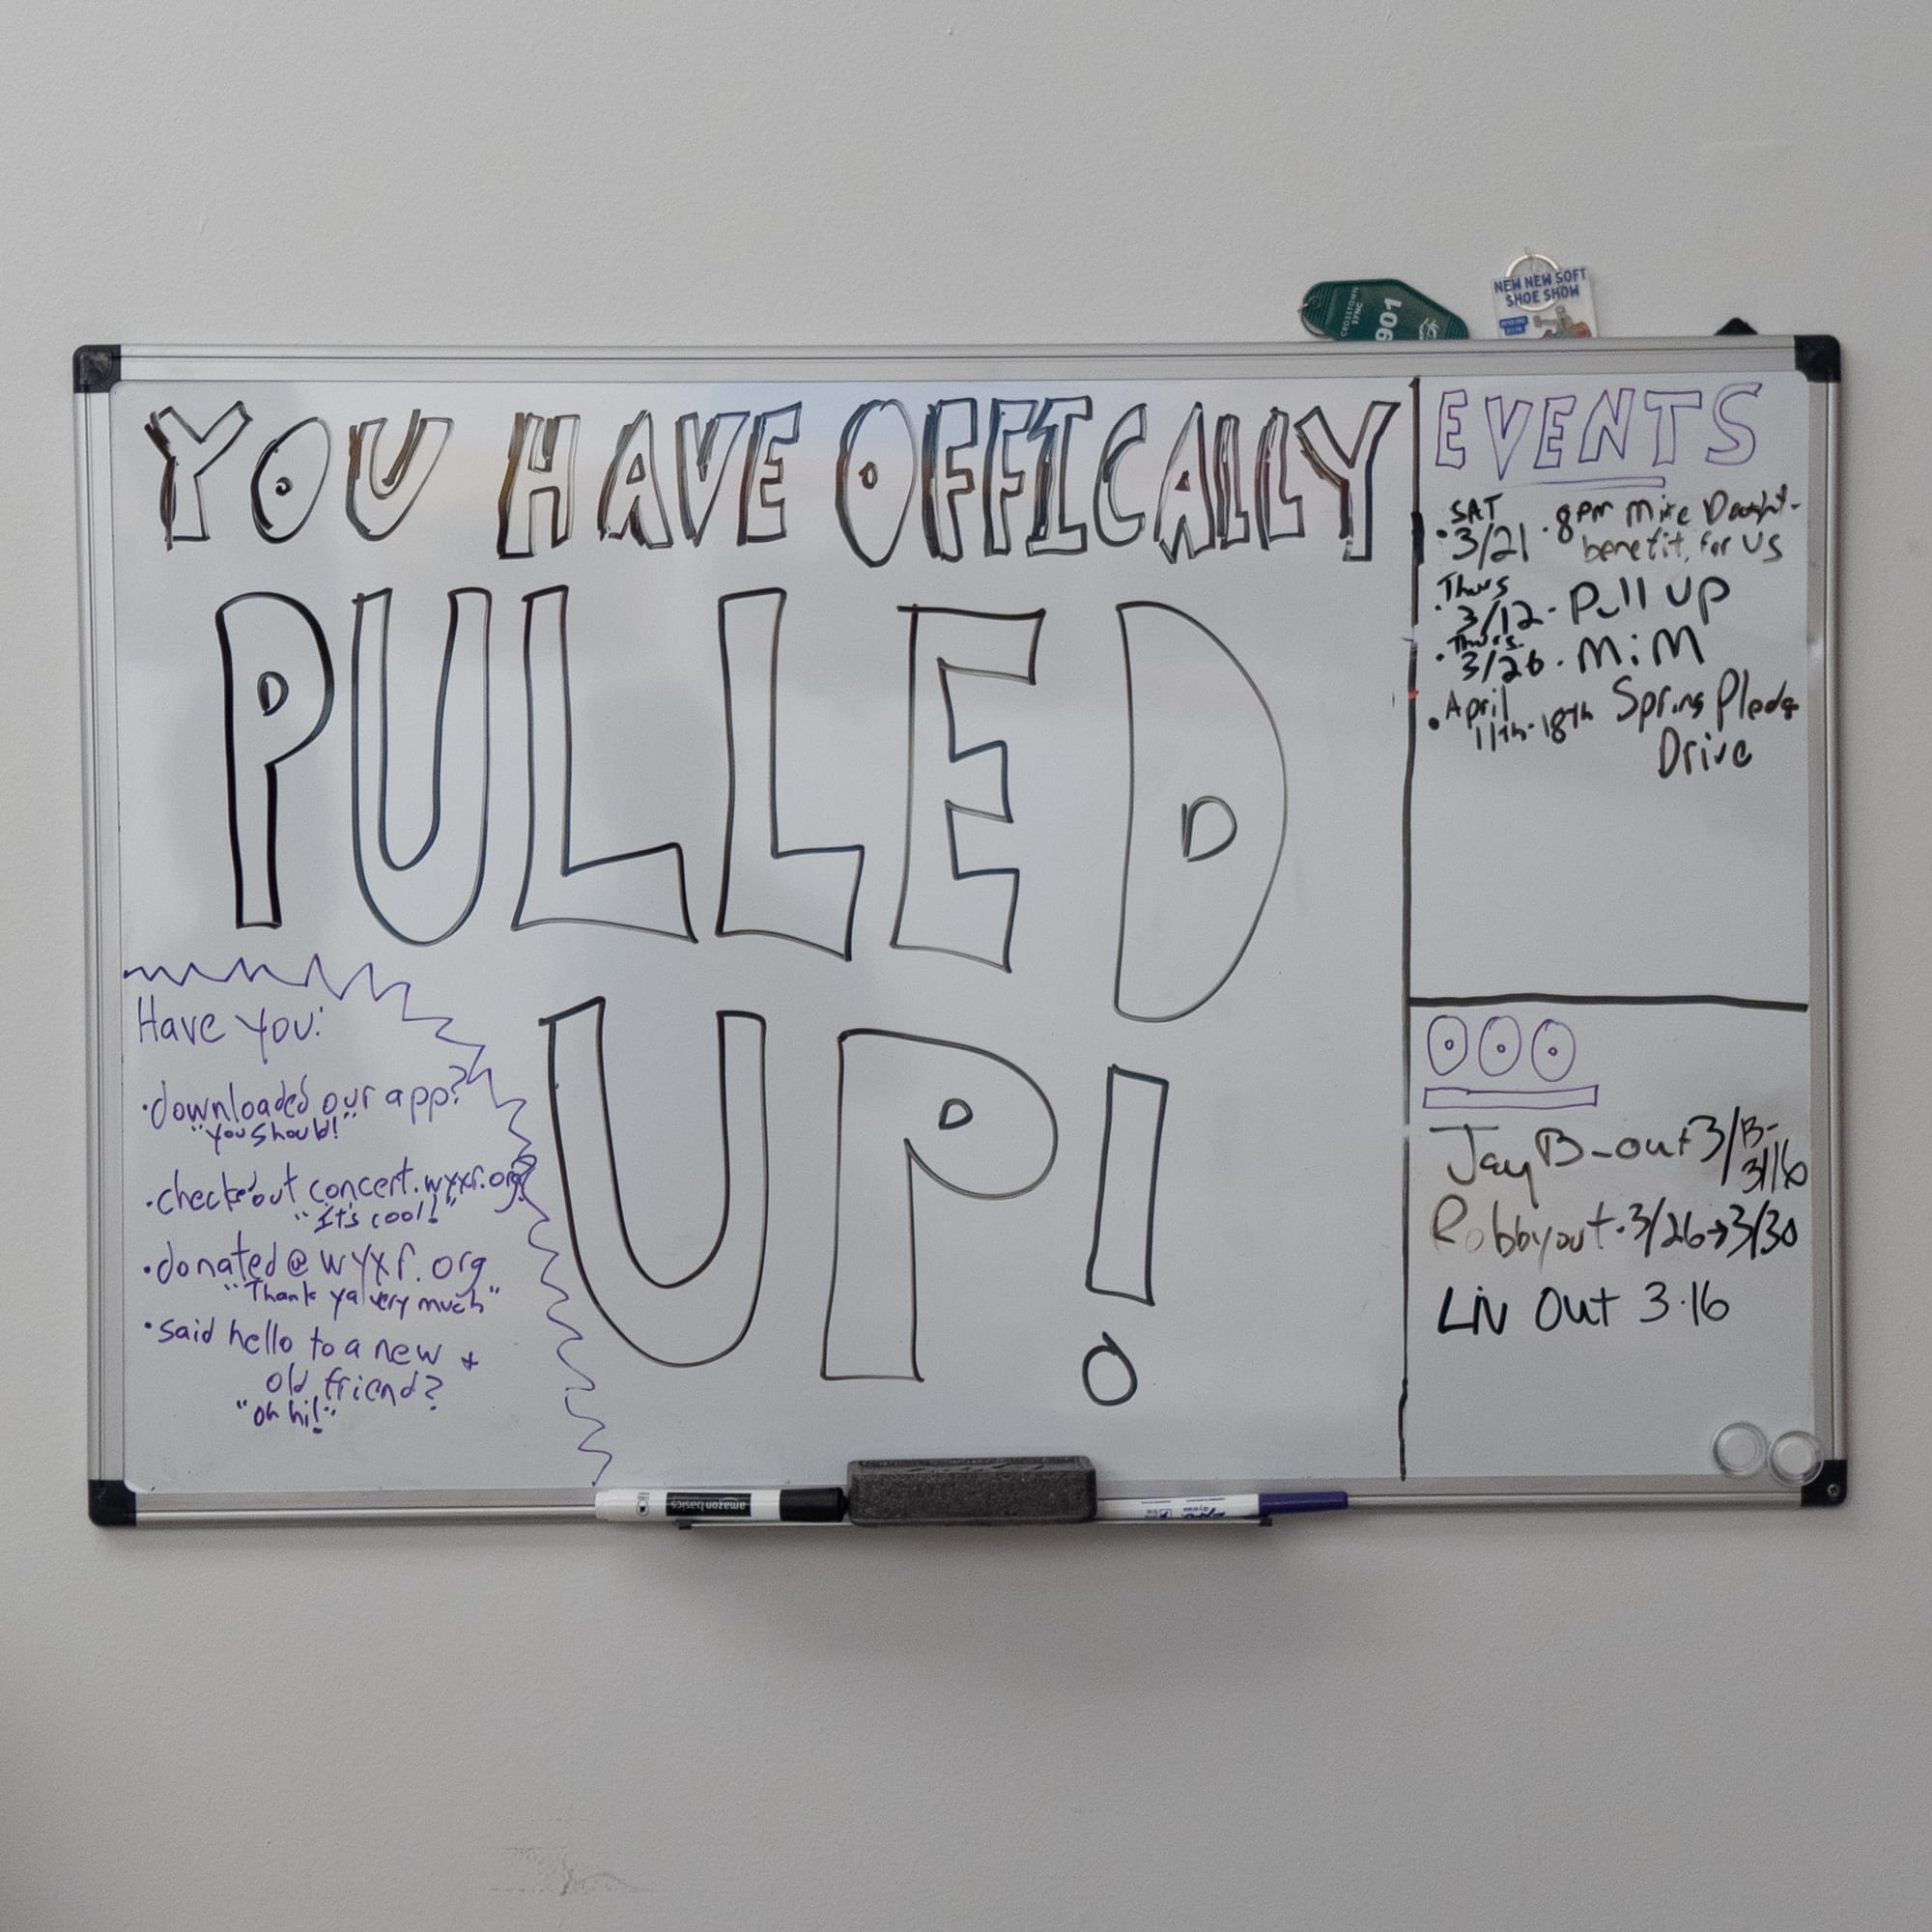 NEW NEW SOFT
SHOE SHOW
CROSSTOWN
901
YOU HAVE OFFICALLY
PULLED
UP!
Have you:
• downloaded our app?
"You should!"
• checked out concert.wyxr.org?
"It's cool!"
• donated @ wyxr.org
"Thank ya very much"
• said hello to a new +
old friend?
"oh hi!"
EVENTS
SAT
• 3/21 - 8pm Mike
benefit for us
Thurs
• 3/12 - Pull up
Thurs.
• 3/26 - MiM
• April
11th-18th Spring Pledge
Drive
OOO
Jay B - out 3/13-
3/16
Robby out - 3/26→3/30
Liv Out 3.16
amazon basics